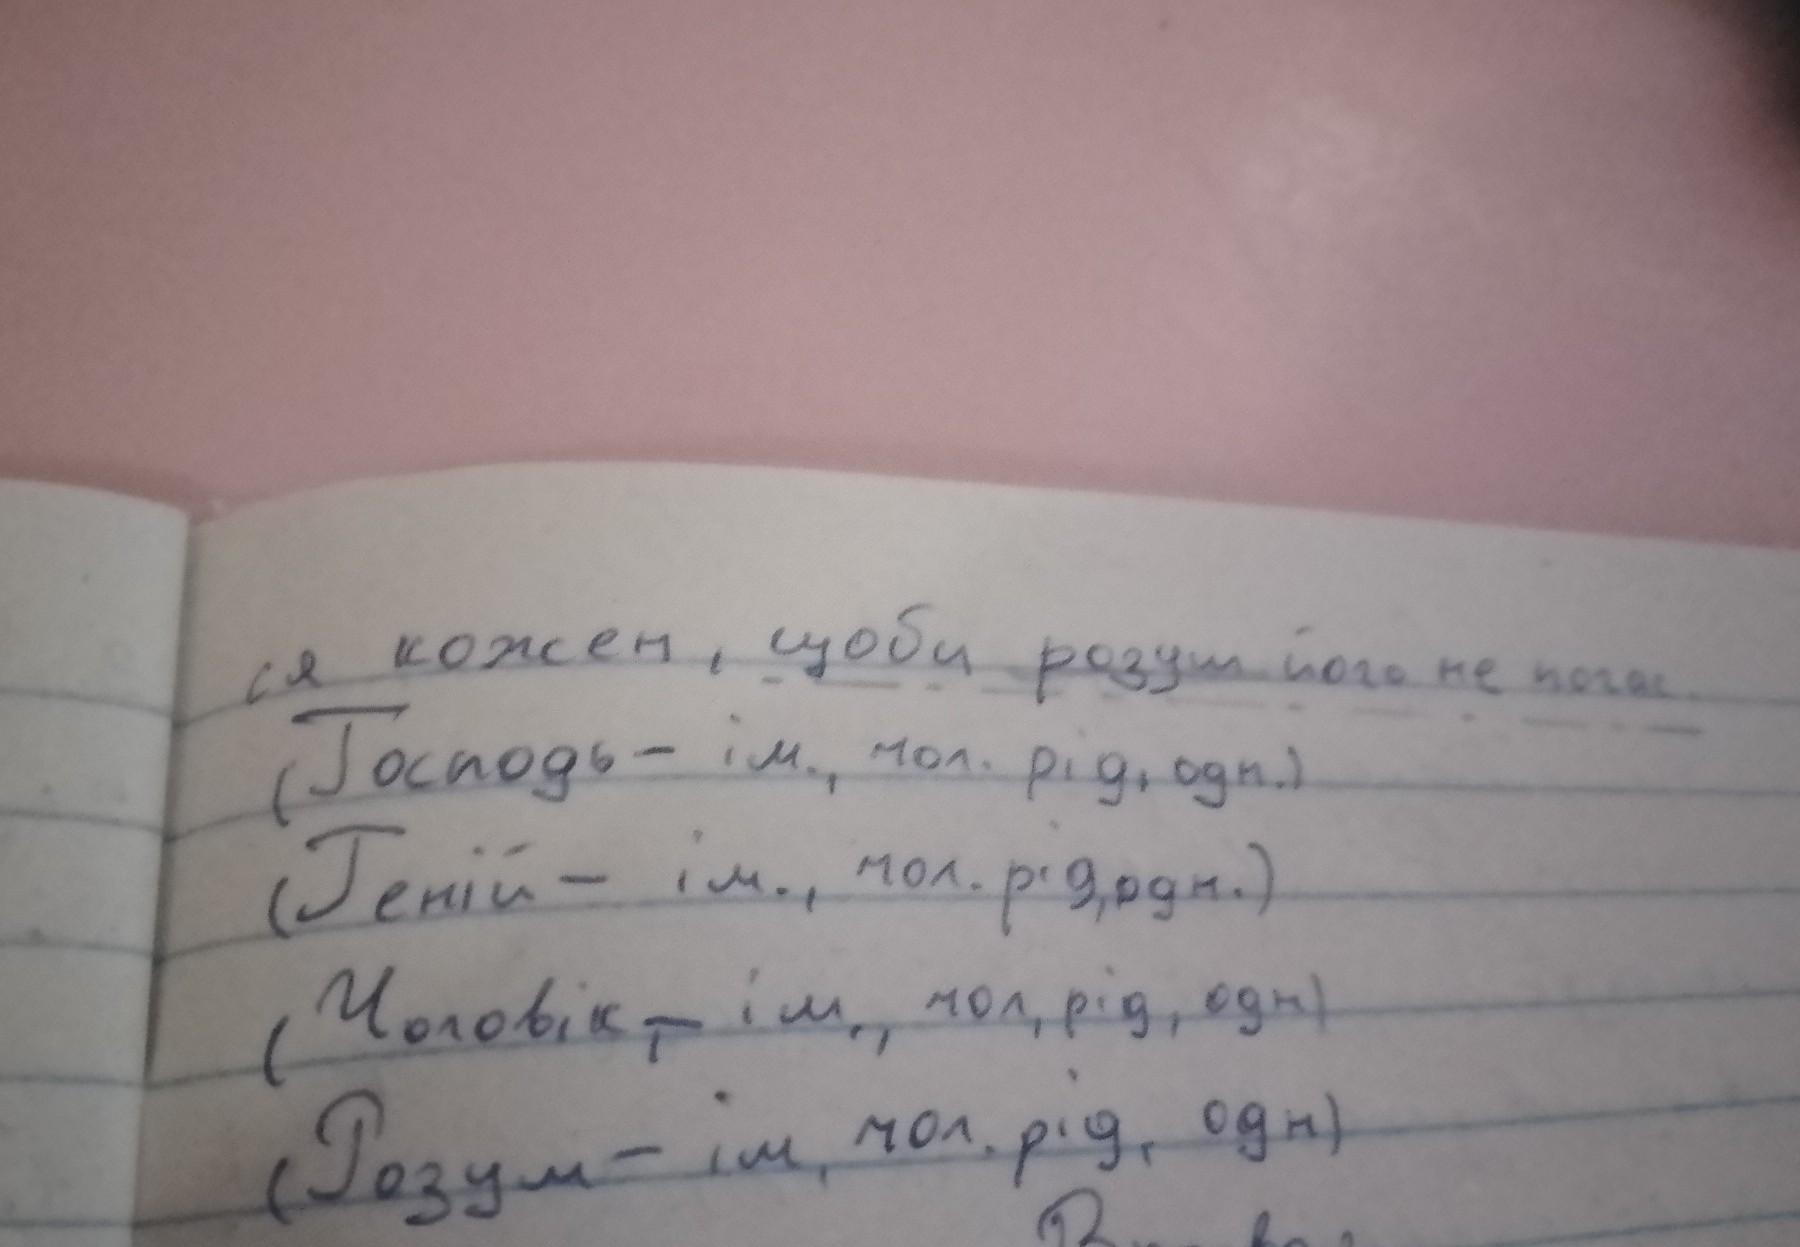 ся кожен, щоби розум його не погас.
(Господь - ім., чол. рід, одн.)
(Геній - ім., чол. рід, одн.)
(Чоловік, - ім., чол, рід, одн)
(Розум - ім, чол. рід, одн)